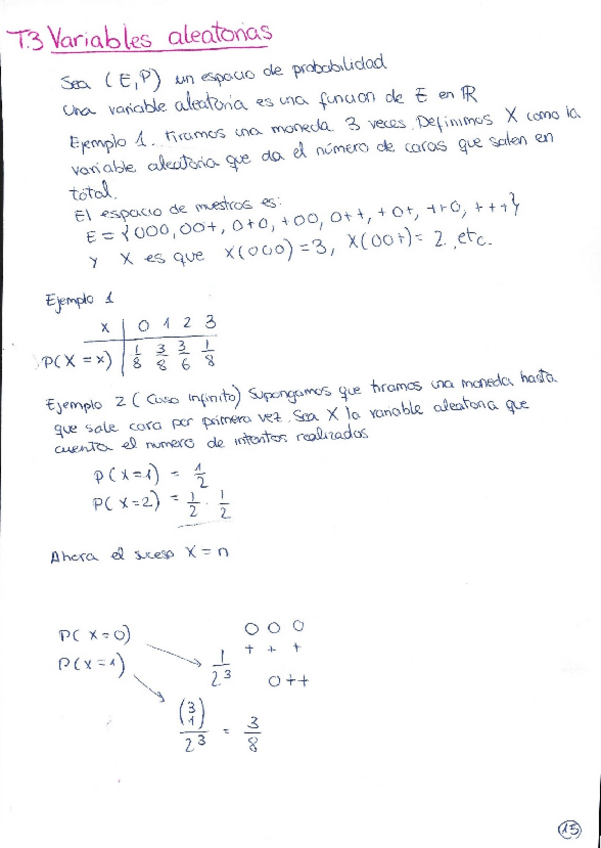 T.3 Variables aleatorias
Sea (E,P) un espacio de probabilidad
Una variable aleatoria es una funcion de E en ℝ
Ejemplo 1. Tiramos una moneda 3 veces. Definimos X como la
variable aleatoria que da el número de caras que salen en
total.
El espacio de muestros es:
E = {000, 00+, 0+0, +00, 0++, +0+, ++0, +++}
y X es que X(000) = 3, X(00+) = 2, etc.
Ejemplo 1
x | 0 1 2 3
P(X = x) | 1/8 3/8 3/6 1/8
Ejemplo 2 (Caso Infinito) Supongamos que tiramos una moneda hasta
que sale cara por primera vez. Sea X la variable aleatoria que
cuenta el numero de intentos realizados
P(X=1) = 1/2
P(X=2) = 1/2 · 1/2
Ahora el suceso X = n
P(X=0) 0 0 0
+ + +
P(X=1) 1/2³ 0++
(3 1)/2³ = 3/8
15